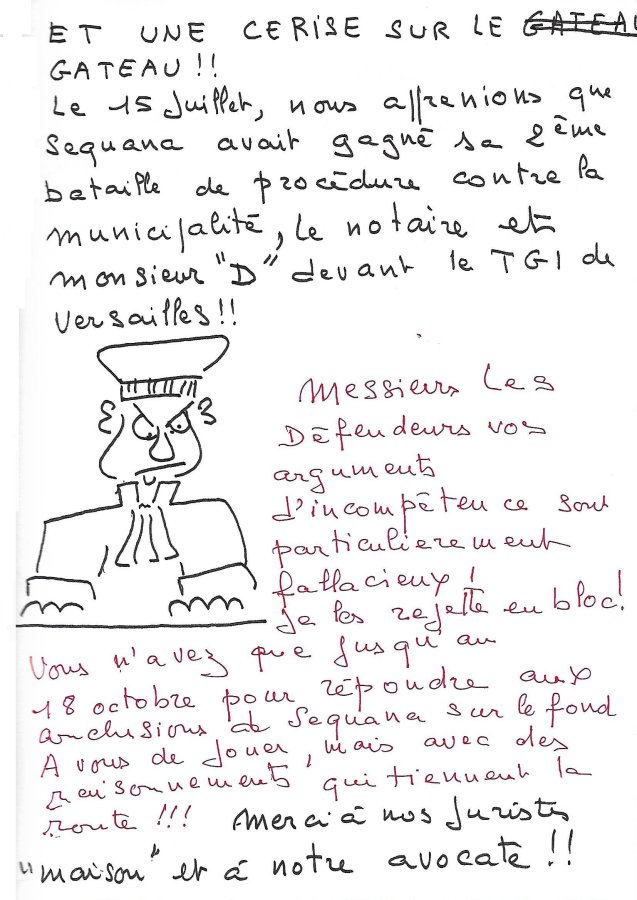 ET UNE CERISE SUR LE GATEAU
GATEAU!!
Le 15 Juillet, nous apprenions que
Sequana avait gagné sa 2ème
bataille de procédure contre la
municipalité, le notaire et
monsieur "D" devant le TGI de
Versailles!!
Messieurs Les
Défendeurs vos
arguments
d'incompéten ce sont
particulierement
fallacieux!
Je les rejette en bloc!
Vous n'avez que jusqu'au
18 octobre pour répondre aux
conclusions de Sequana sur le fond
A vous de jouer, mais avec des
raisonnements qui tiennent la
route!!! Merci à nos Juristes
"maison" et à notre avocate!!